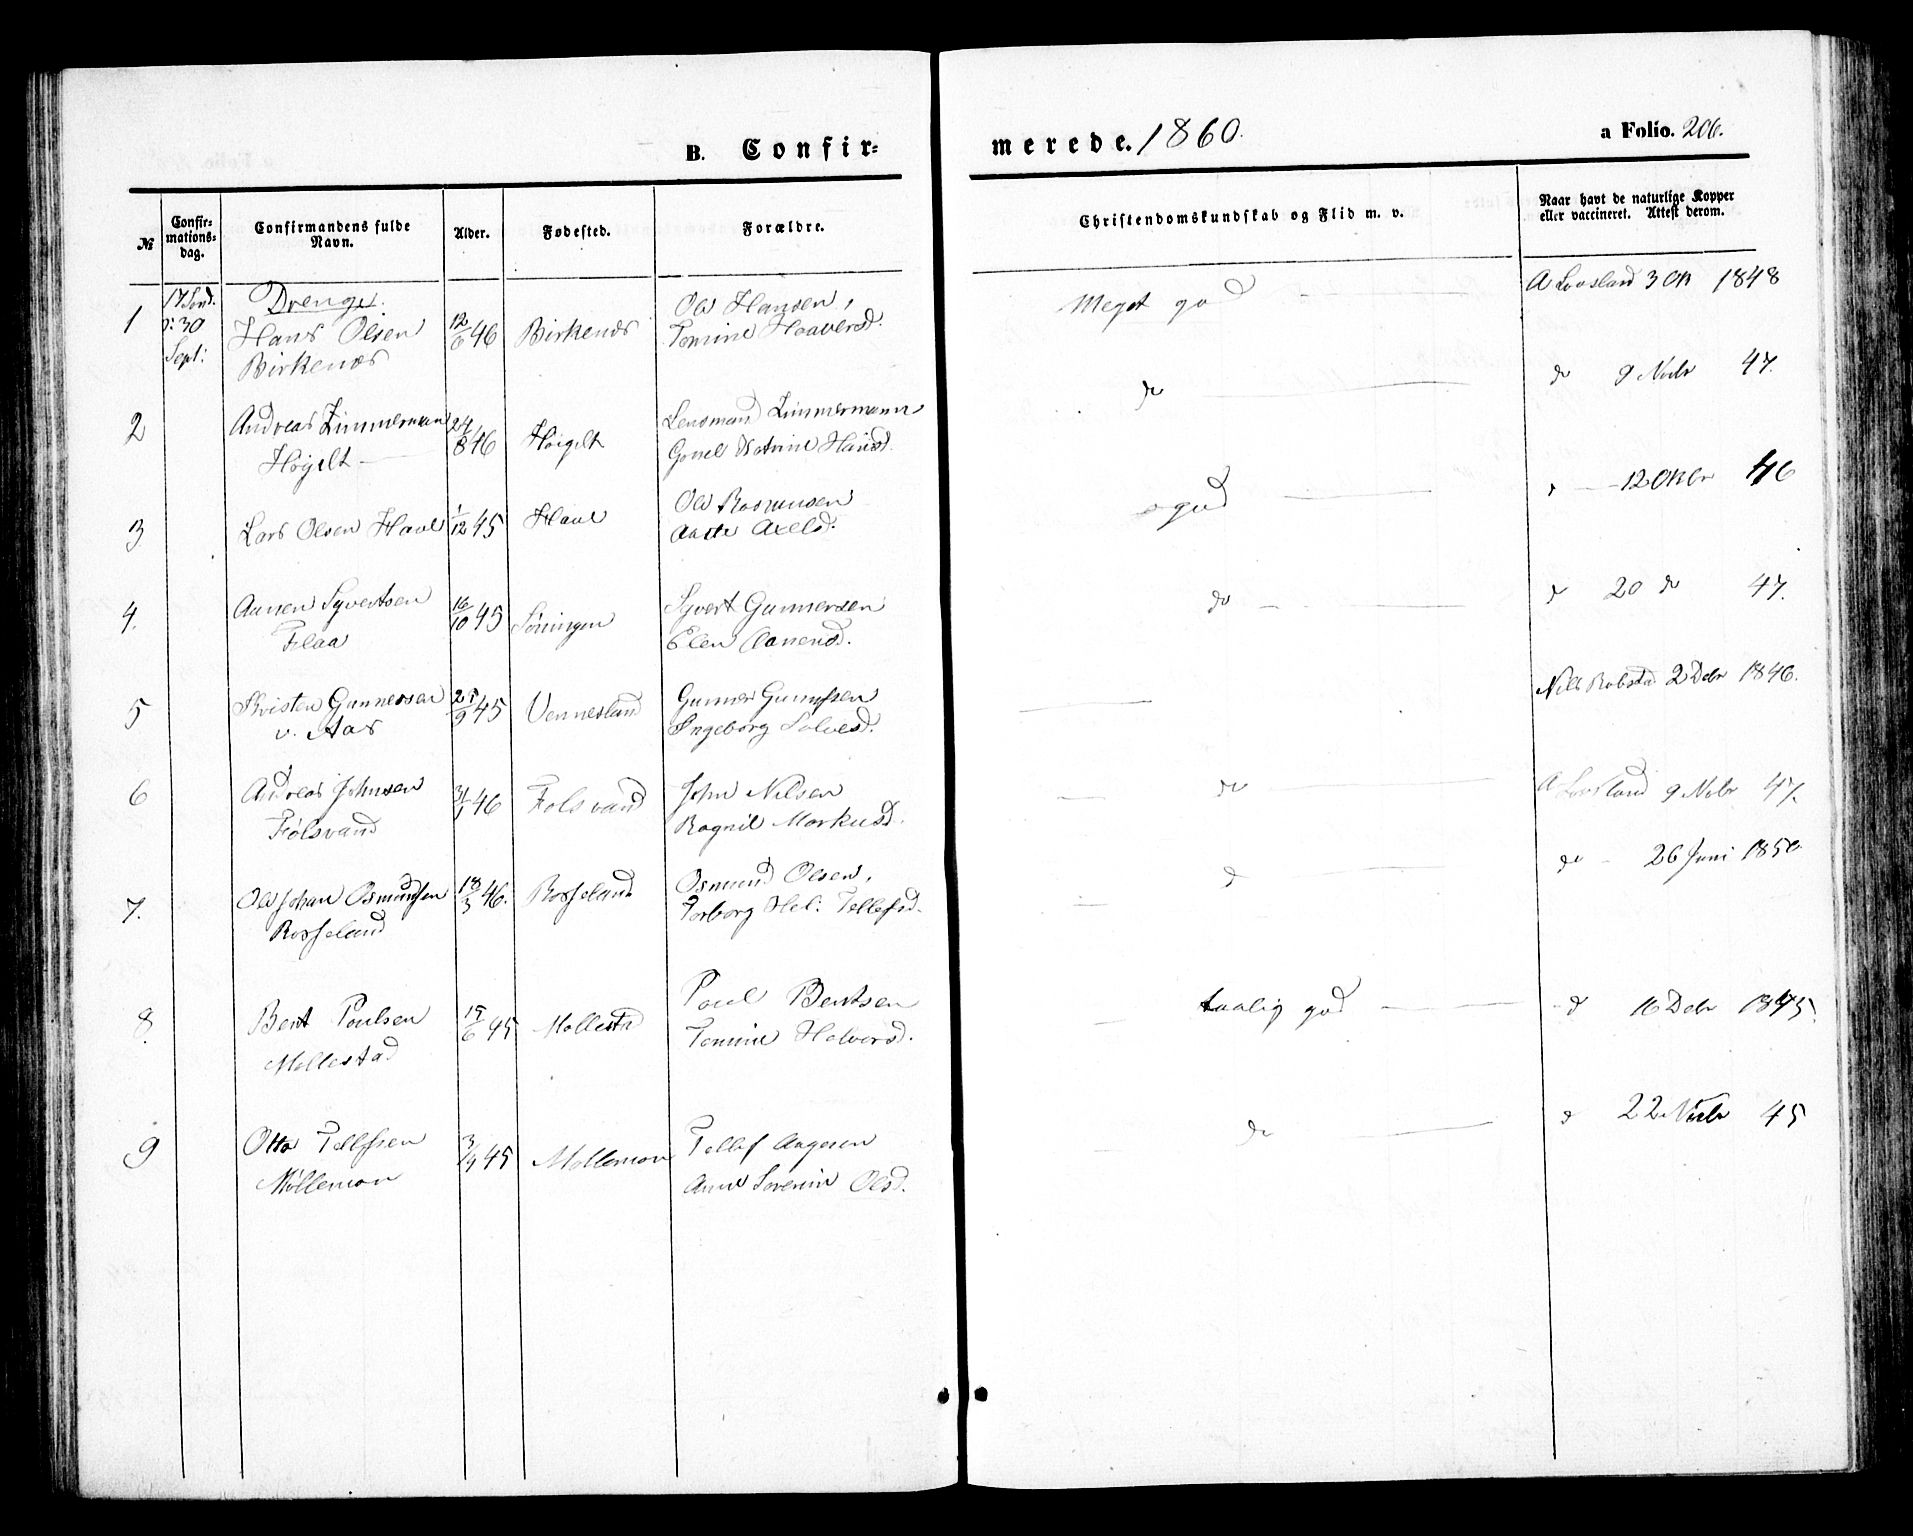 B. Confir-
merede. 1860.
a Folio. 206.
№
Confir-
mations-
dag.
Confirmandens fulde
Navn.
Alder.
Fødested.
Forældre.
Christendomskundskab og Flid m. v.
Naar havt de naturlige Kopper
eller vaccineret. Attest derom.
1
17 Sønd.
30
Sept:
Drenge.
Hans Olsen
Birkenæs
12/6 46
Birkenæs
Ole Hansen,
Tomine Haaversd.
Meget god
A Lovsland 3 Ok 1848
2
Andreas Zimmerman
Høgelt
24/8 46
Høigelt
Lensmand Zimmermann
Gonel Katrine Hansd.
do
do 9 Novbr 47.
3
Lars Olsen Have
1/12 45
Have
Ole Rasmusen
Aaste Axelsd.
god
12 Okbr 46
4.
Aanen Syvertsen
Flaa
16/10 45
Søningen
Syvert Gunnersen
Elen Aanensd.
do
d 20 do 47.
5
Kristen Gunnersen
v. Aas
25/9 45
Vennesland
Gunner Gunufsen
Ingeborg Solvesd.
Nils Robstad 2 Debr 1846.
6
Andreas Johnsen
Følsvand
3/1 46
Folsvand
John Nilsen
Ragnil Markusd.
do
A Lovsland 9 Novbr 47.
7.
Ole Johan Osmundsen
Rosseland
18/3 46.
Rosseland
Osmund Olsen,
Torborg Hel: Tellefsd.
d
do 26 Juni 1850
8
Bent Poulsen
Mollestad
15/6 45
Mollestd
Poul Bentsen
Tomine Halvorsd.
taalig god
d 16 Debr 1845.
9
Otto Tellefsen
Møllemon
45
Mollemon
Tellef Aagesen
Anne Severine Olsd.
do
d 22 Novbr 45